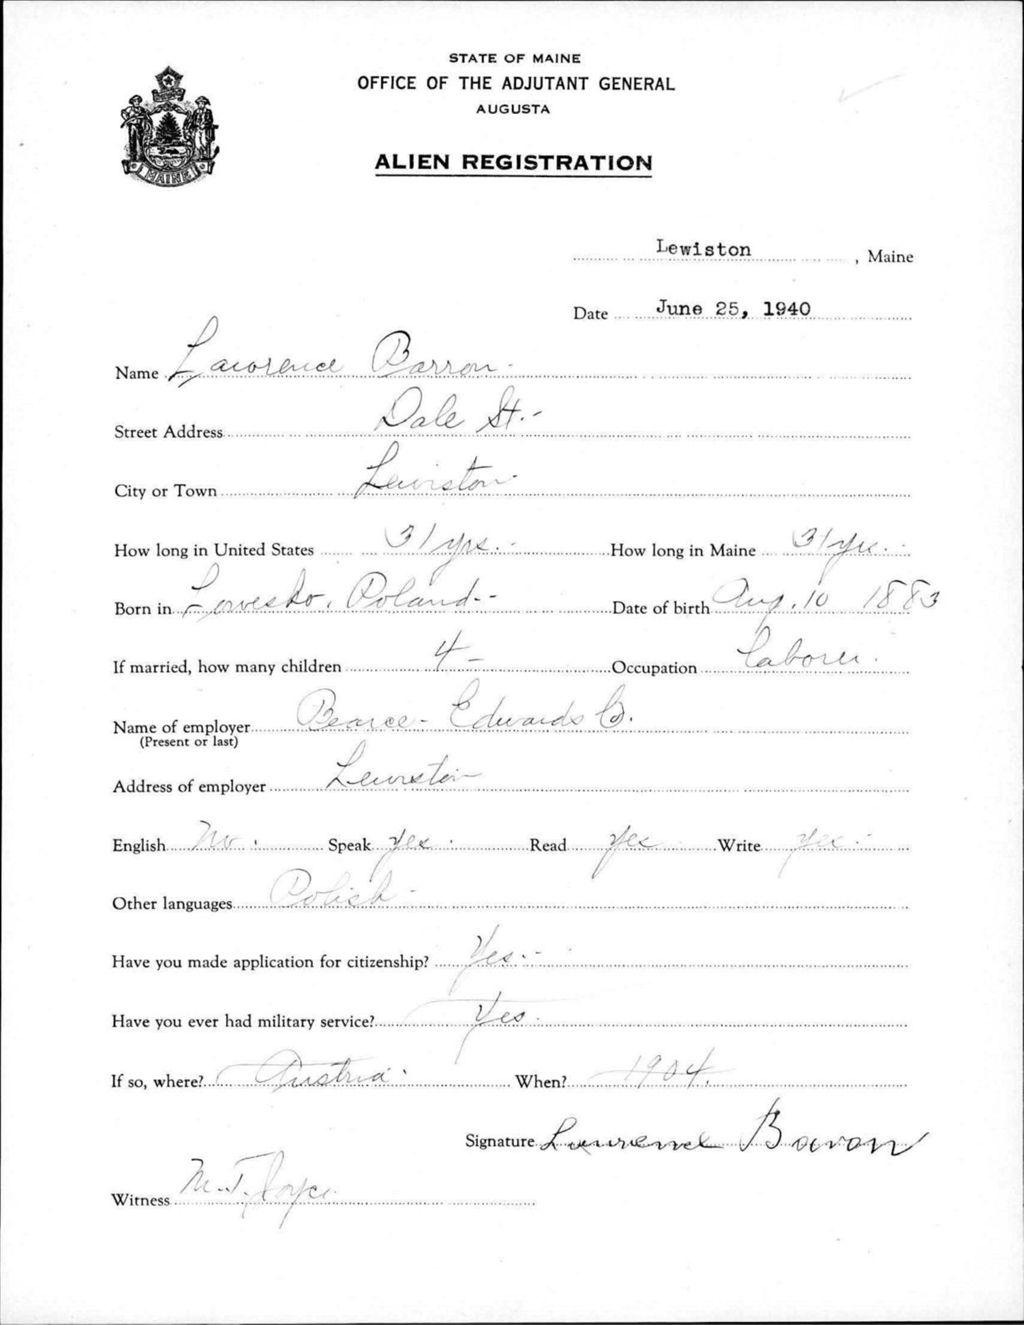 STATE OF MAINE
OFFICE OF THE ADJUTANT GENERAL
AUGUSTA
ALIEN REGISTRATION
MAINE
Lewiston, Maine
Date June 25, 1940
Name Lawrence Barron
Street Address Dale St.
City or Town Lewiston
How long in United States 31 yrs. How long in Maine 31 yrs.
Born in Poland Date of birth Aug. 10 1883
If married, how many children 4 Occupation Laborer
Name of employer Pearce-Edwards Co.
(Present or last)
Address of employer Lewiston
English No. Speak yes Read yes Write yes
Other languages Polish
Have you made application for citizenship? Yes
Have you ever had military service? Yes
If so, where? Austria When? 1904.
Signature Lawrence Baron
Witness M. T. Joyce